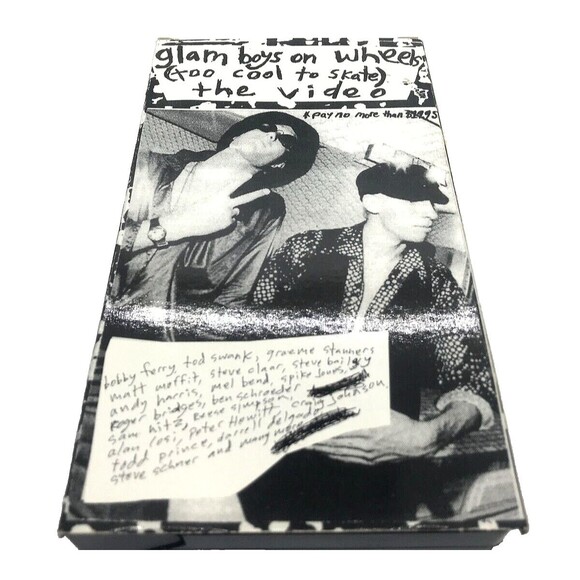 glam boys on wheels
(too cool to skate)
the video
* pay no more than
bobby ferry, tod swank, graeme stanners
matt moffit, steve claar, steve bailey
andy harris, mel bend, spike jones,
roger bridges, ben schroeder
sam hitz, reese simpson, craig johnson,
alan losi, peter hewitt,
todd prince, darrell delgado
steve schner and many more